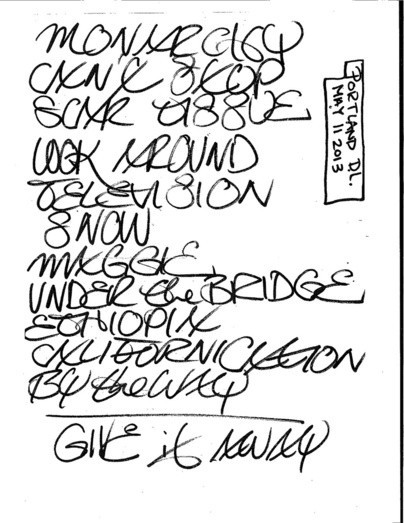 MONARCHY
CAN'T STOP
SCAR TISSUE
LOOK AROUND
TELEVISION
SNOW
MAGGIE
UNDER the BRIDGE
ETHIOPIA
CALIFORNICATION
BY the WAY
GIVE it AWAY
PORTLAND DL.
MAY 11 2013